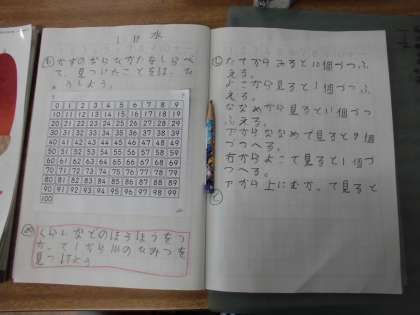 1/18 水
かずのならびかたをしらべ
て、見つけたことをはっぴ
ょうしよう。
0 1 2 3 4 5 6 7 8 9
10 11 12 13 14 15 16 17 18 19
20 21 22 23 24 25 26 27 28 29
30 31 32 33 34 35 36 37 38 39
40 41 42 43 44 45 46 47 48 49
50 51 52 53 54 55 56 57 58 59
60 61 62 63 64 65 66 67 68 69
70 71 72 73 74 75 76 77 78 79
80 81 82 83 84 85 86 87 88 89
90 91 92 93 94 95 96 97 98 99
100
くらいなどのほうほうをつ
かって1から100のひみつを
見つけよう
たてから みると10個づつふ
える。
よこから見ると1個づつふ
える。
ななめから見ると11個づつ
ふえる。
下からななめで見ると9個
づつへる。
右からよこで見ると1個づ
つへる。
下から上にむかって見ると